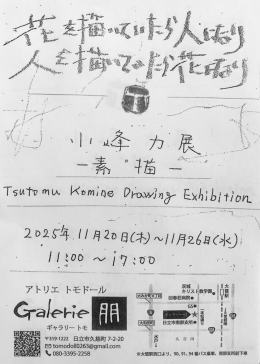 花を描いていたら人になり
人を描いていたら花になり
小峰力展
－素描－
Tsutomu Komine Drawing Exhibition
2025年11月20日(木)～11月26日(水)
11:00～17:00
アトリエ トモドール
Galerie 朋
ギャラリー トモ
〒319-1222 日立市久慈町 7-2-20
tomodoll0263@gmail.com
080-3395-2258